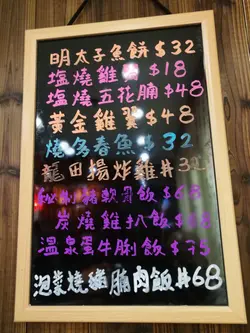 明太子魚餅$32
塩燒雞肉$18
塩燒五花腩$48
黃金雞翼$48
燒多春魚$32
龍田揚炸雞$32
秘制豬軟骨飯$68
炭燒雞扒飯$68
温泉蛋牛脷飯$75
泡菜燒豬腩肉飯$68